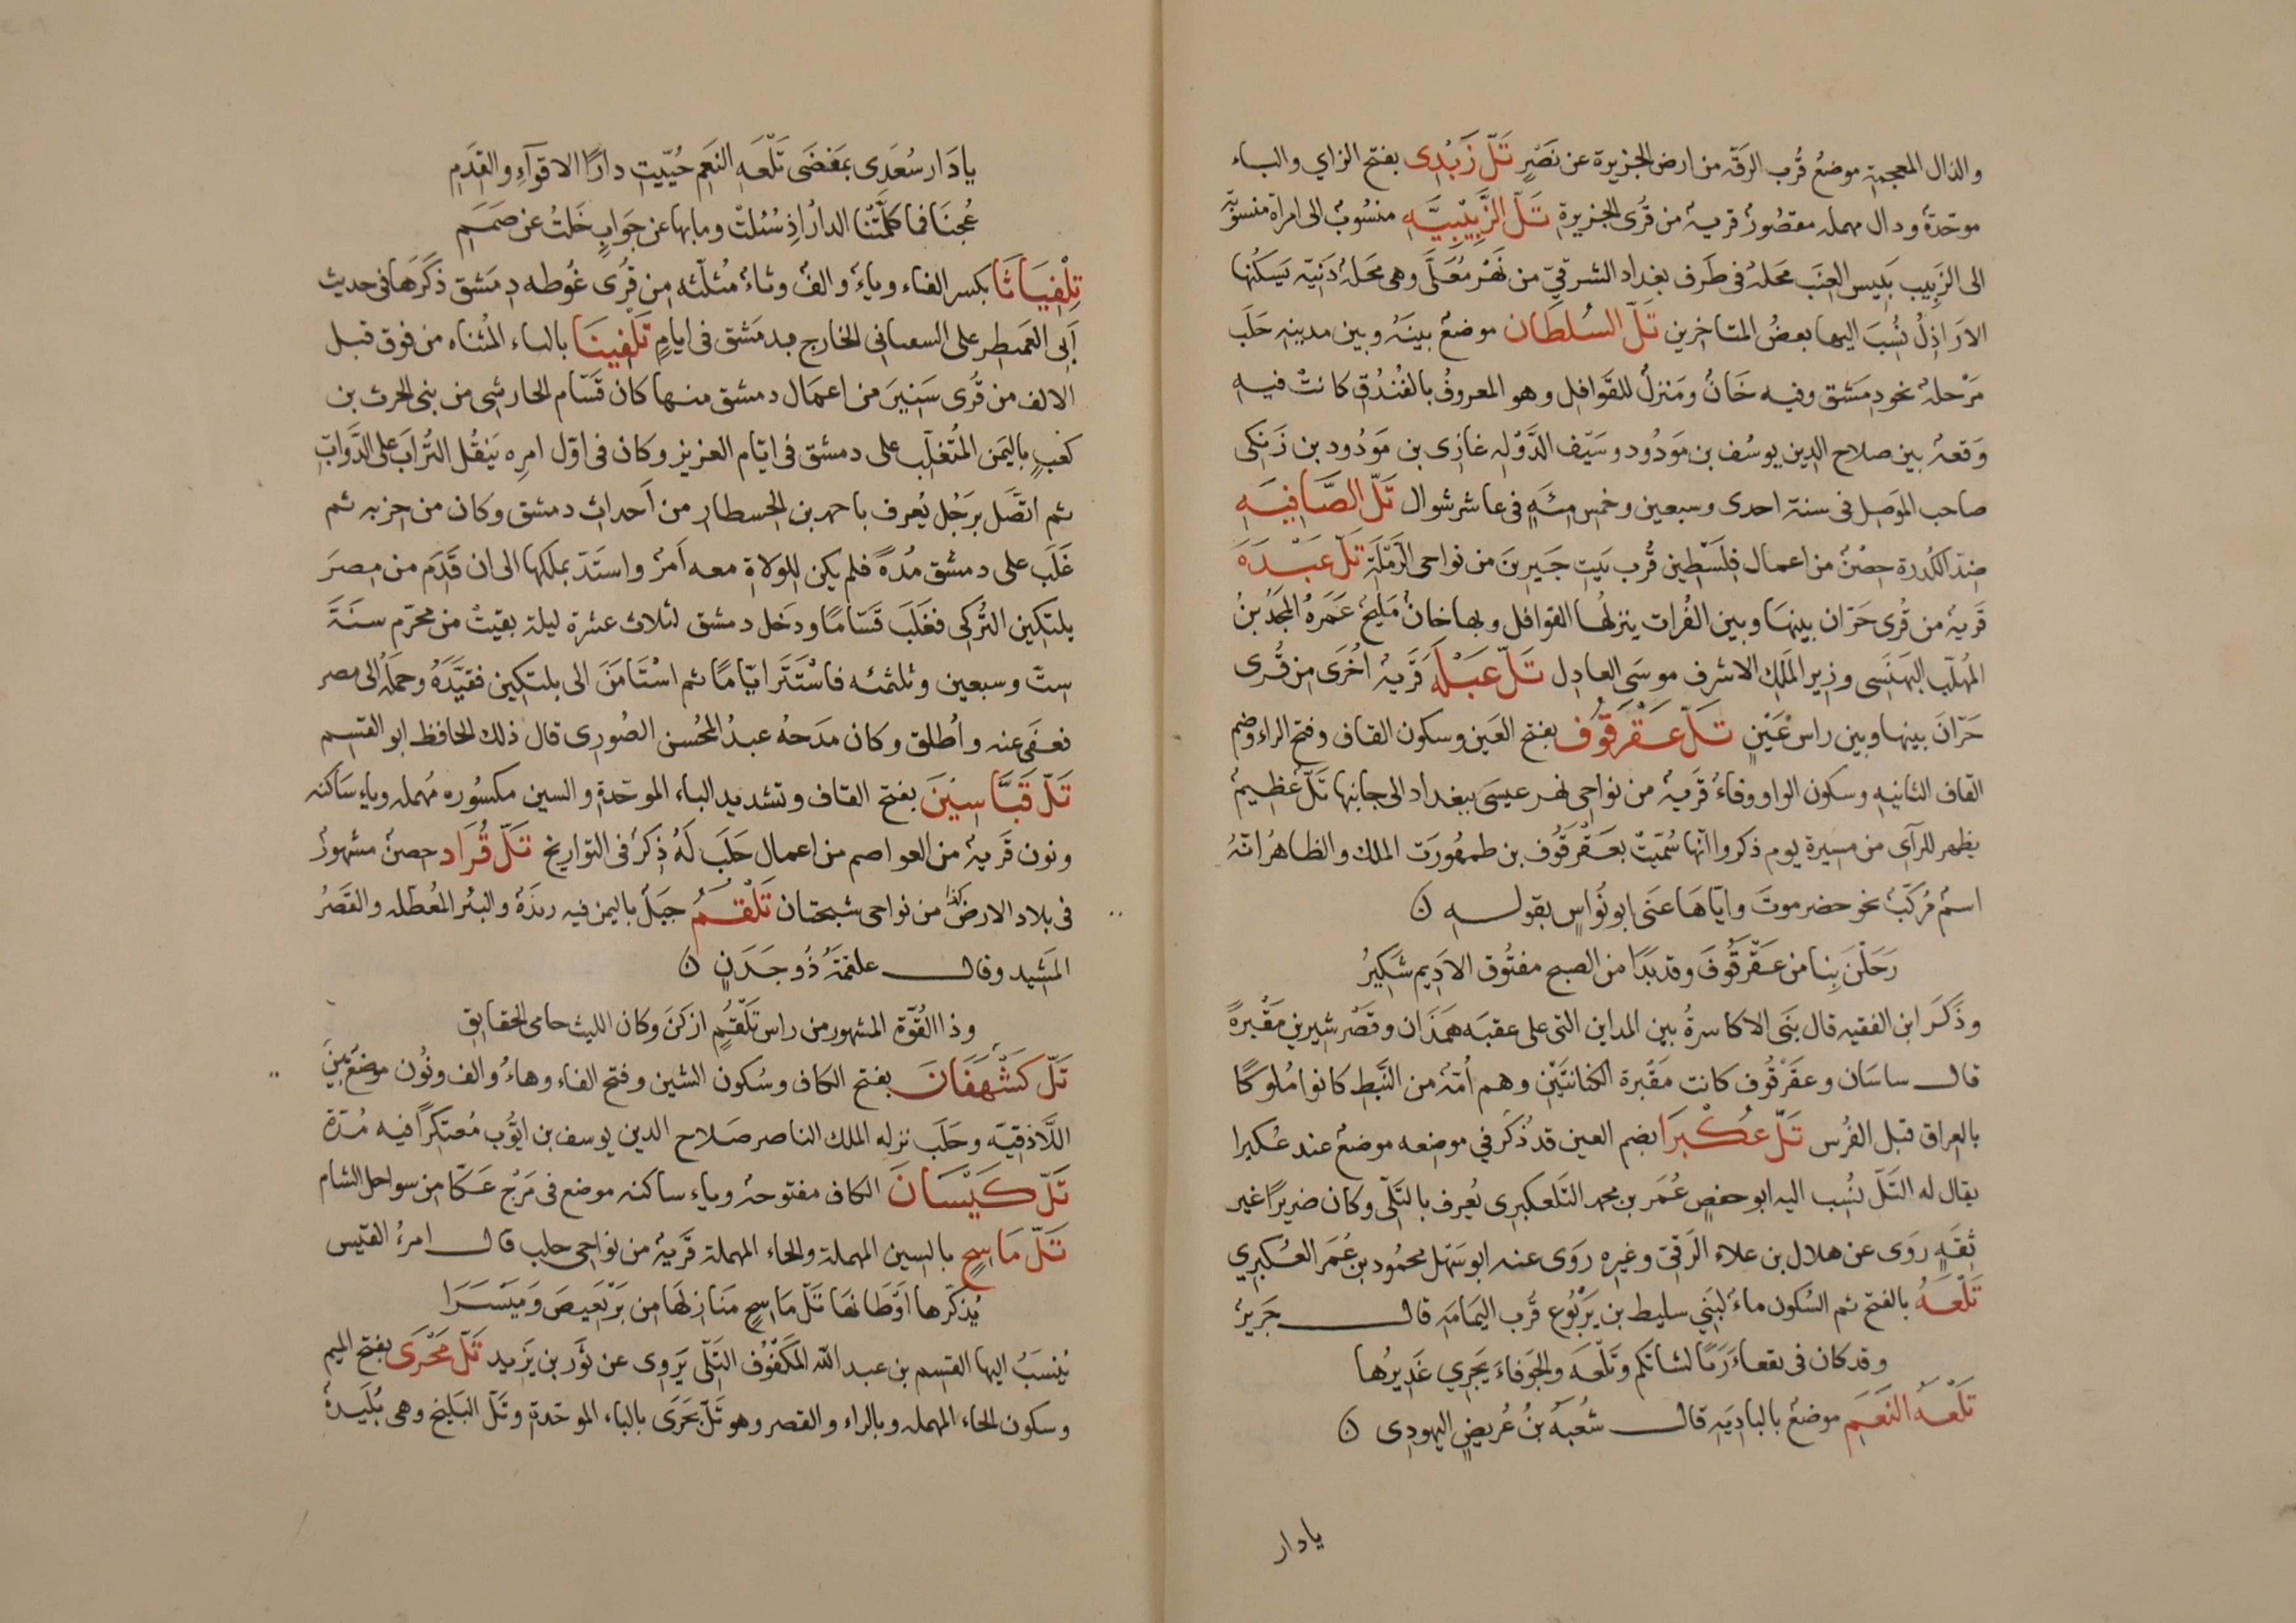 والذال المعجمة موضعٌ قُرب الرَقّه من ارض الجزيرة عن نَصْرٍ تَلّ زَبْدى بفتح الزاي والباء
موحّدةٌ ودال مهمله مقصُورٌ قريهٌ من قُرى الجزيرة تَلّ الزَّبِيْبيَّه منسُوبٌ الى امراة منسوبّة
الى الزَبِيب يَبِيس العِنَب محَلهٌ فى طَرف بغداد الشرقيّ من نَهْر مُعَلَّى وهى محَلهٌ دَنِيّه يَسكُنها
الارَاذِلُ نُسِبَ اليها بعضُ المتاخرين تَلّ السُلطَان موضعٌ بينَهُ وبين مدينه حَلَب
مَرْحلهٌ نحو دِمَشق وفيه خَانٌ ومَنزلٌ للقَوافِل وهو المعروفُ بالفُندُق كانتْ فيه
وَقعهٌ بين صلاح الدين يوسُف بن مَودُود وسَيف الدَّوْله غازى بن مَودُود بن زَنكى
صاحب الموَصِل فى سنة احدى وسبعين وخمس مئَهٍ فى عاشر شوال تَلّ الصَّافِيَه
ضِدّ الكَدرة حِصْنٌ من اعمال فِلَسْطين قُرب بَيت جَبرينَ من نواحى الرَمْلَة تَلّ عَبْدَهَ
قَريهٌ من قُرى حَرّان بينهَا وبين الفُرات ينزلهُا القوافل وبها خانٌ مَليحٌ عَمَرهُ المجَدُ بنُ
المُهلّب البَهنَسَى وزير المَلك الاشرف موسَى العادِل تَلّ عَبْلَةَ قَريهٌ اُخرَى من قُرى
حَرّانَ بينها وبين راس عَيْنٍ تَلّ عَقْرَقُوف بفتح العَين وسكون القاف وفتح الراء وضم
القاف الثانيه وسكون الواو وفاءٌ قَريهٌ من نواحى نهر عيسَى ببغداد الى جانبها تَلّ عظيمٌ
يظهر للرآى من مسيرة يوم ذكروا انّها سُمّيَتْ بعَقْرَقُوف بن طمهُورَت الملك والظاهُر انّهُ
اسمٌ مُركَّبٌ نحو حضرموتَ وايّاهَا عنَى ابو نُوَاسٍ بقوله ن
رَحَلْنَ بِنا من عَقْرَقُوفَ وقد بَدَا من الصبح مفتُوق الاَدِيم شَكِيرُ
وذَكَر ابن الفقيه قال بنَى الاكاسرةُ بين المداين التى على عقبَه هَمَذَان وقَصْر شيرين مَقْبرةً
قال ساسَان وعقَرْقُوف كانت مَقْبرة الكنانيّيْن وهم اُمّهٌ من النَّبَط كانوا مُلوكًا
بالعراق قبل الفُرس تَلّ عُكْبَرَا بضم العين قد ذُكَر في موضعه موضعٌ عند عُكبرا
يقال له التَلّ نُسِب اليه ابو حفصٍ عُمَر بن محمد التَلعكبرى يُعرف بالتَلّى وكان ضريرًا غير
ثِقَهٍ روَى عن هلال بن علاء الرَقّىّ وغيره روَى عنه ابو سَهْل محمُود بن عُمَر العُكبرِي
تَلْعَهُ بالفتح ثم السُكون ماءٌ لبَني سليط بن يَرْبُوع قُرب اليمامَه قال جَريرٌ
وقد كان فى بقعاءَ رَمًا لشاتكم وتَلْعَه والجَوفاءَ يَجرِي غَدِيرُها
تَلْعَهُ النَعَم موضعٌ بالبادِيَه قال شُعْبَهُ بنُ عُريضٍ اليهودى ن
يا دار
يا دَار سُعَدى بمَفضَى تَلْعَه النَعَم حُيّيتِ دارًا الاقوآءِ والقدَم
عُجنَا فما كلَّمتْنا الدارُ اذِ سُئلتْ وما بها عن جَوابٍ خَلتُ عن صَمَم
تِلْفِيَاثَا بكسر الفاء وياءٌ والفٌ وثاءٌ مُثلّثه من قُرى غُوطه دِمَشق ذَكَرَها فى حديث
اَبى العَميطر على السعىانى الخارج بدمَشق فى ايام تَلْفِينَا بالتاء المُثناه من فوق قبل
الالف من قُرى سَنِيرَ من اعمال دمشق منها كان قَسّام الحارثى من بنى الحرث بن
كعْبٍ باليَمن المُتغلّب على دمشق فى ايّام العزيز وكان فى اوّل امرِه يَنقُل التُرابَ على الدَّوابّ
ثم اتَّصَل برَجُل يُعرف باحمد بن الحسطار من اَحداث دمشق وكان من حزبه ثم
غَلَب على دمشق مُدةً فلم يكن للولاة معه اَمرٌ واستَدّ بملكها الى ان قَدِم من مِصرَ
يلتكين التُركى فغلَبَ قسّامًا ودخَل دمشق لثلاث عشرة ليلة بقيتْ من محرّم سَنَةَ
ستّ وسبعين وثلثمئه فاسْتَتَر ايّامًا ثم اسْتَامَنَ الى يلتكين فقيَّدَهُ وحمَلهُ الى مصر
فعفَى عنه واُطلق وكان مدَحهُ عبدُ المحُسن الصُورى قال ذلك الحافظ ابو القسم
تَلّ قَبَّاسِيْنَ بفتح القاف وتشديد الباء الموحّدة والسين مكسُوره مُهمله وياء سَاكنه
ونون قَريهٌ من العواصم من اعمال حَلَب لَهُ ذِكرٌ فى التواريخ تَلّ قُرَاد حصنٌ مشهورٌ
فى بلاد الارض كذا من نواحى شبختان تَلْقُم جبَلٌ باليمن فيه ريذَةُ والبئر المُعطَّله والقَصْرُ
المَشيد وقال علقمَهُ ذُو جَدَنٍ ن
وذا القُوّة المشهور من راس تَلْقُمٍ ازكنَ وكان الليث حامى الحقايق
تَلّ كَشْفَهَانَ بفتح الكاف وسُكون الشين وفتح الفاء وهاءٌ والف ونُون موضعٌ بَينَ
اللَّاذقيّه وحَلَب نزله الملك الناصر صَلاح الدين يوسف بن ايوُّب مُعتكرًا فيه مُدّة
تَلّ كَيْسَانَ الكاف مفتوحهٌ وياء ساكنه موضع فى مَرْج عَكّا من سواحل الشام
تَلّ مَاسِحٍ بالسين المهملة والحاء المهملة قَريهٌ من نواحى حلب قال امرءُ القيس
يُذكّرها اَوْطانهَا تَلّ مَاسِحٍ مَنَازِلهَا من بَرْبَعِيصَ وَمَيْسَرَا
يُنسَبُ اليها القسم بن عبد الله المكفُوف التَلّى يَروى عن ثَوْر بن يَزيد تَلّ مَحْرَى بفتح الميم
وسكون الحاء المهمله وبالراء والقصر وهو تَلّ بَحْرَى بالباء الموحّدة وتَلّ البَليخ وهى بُلَيدةٌ